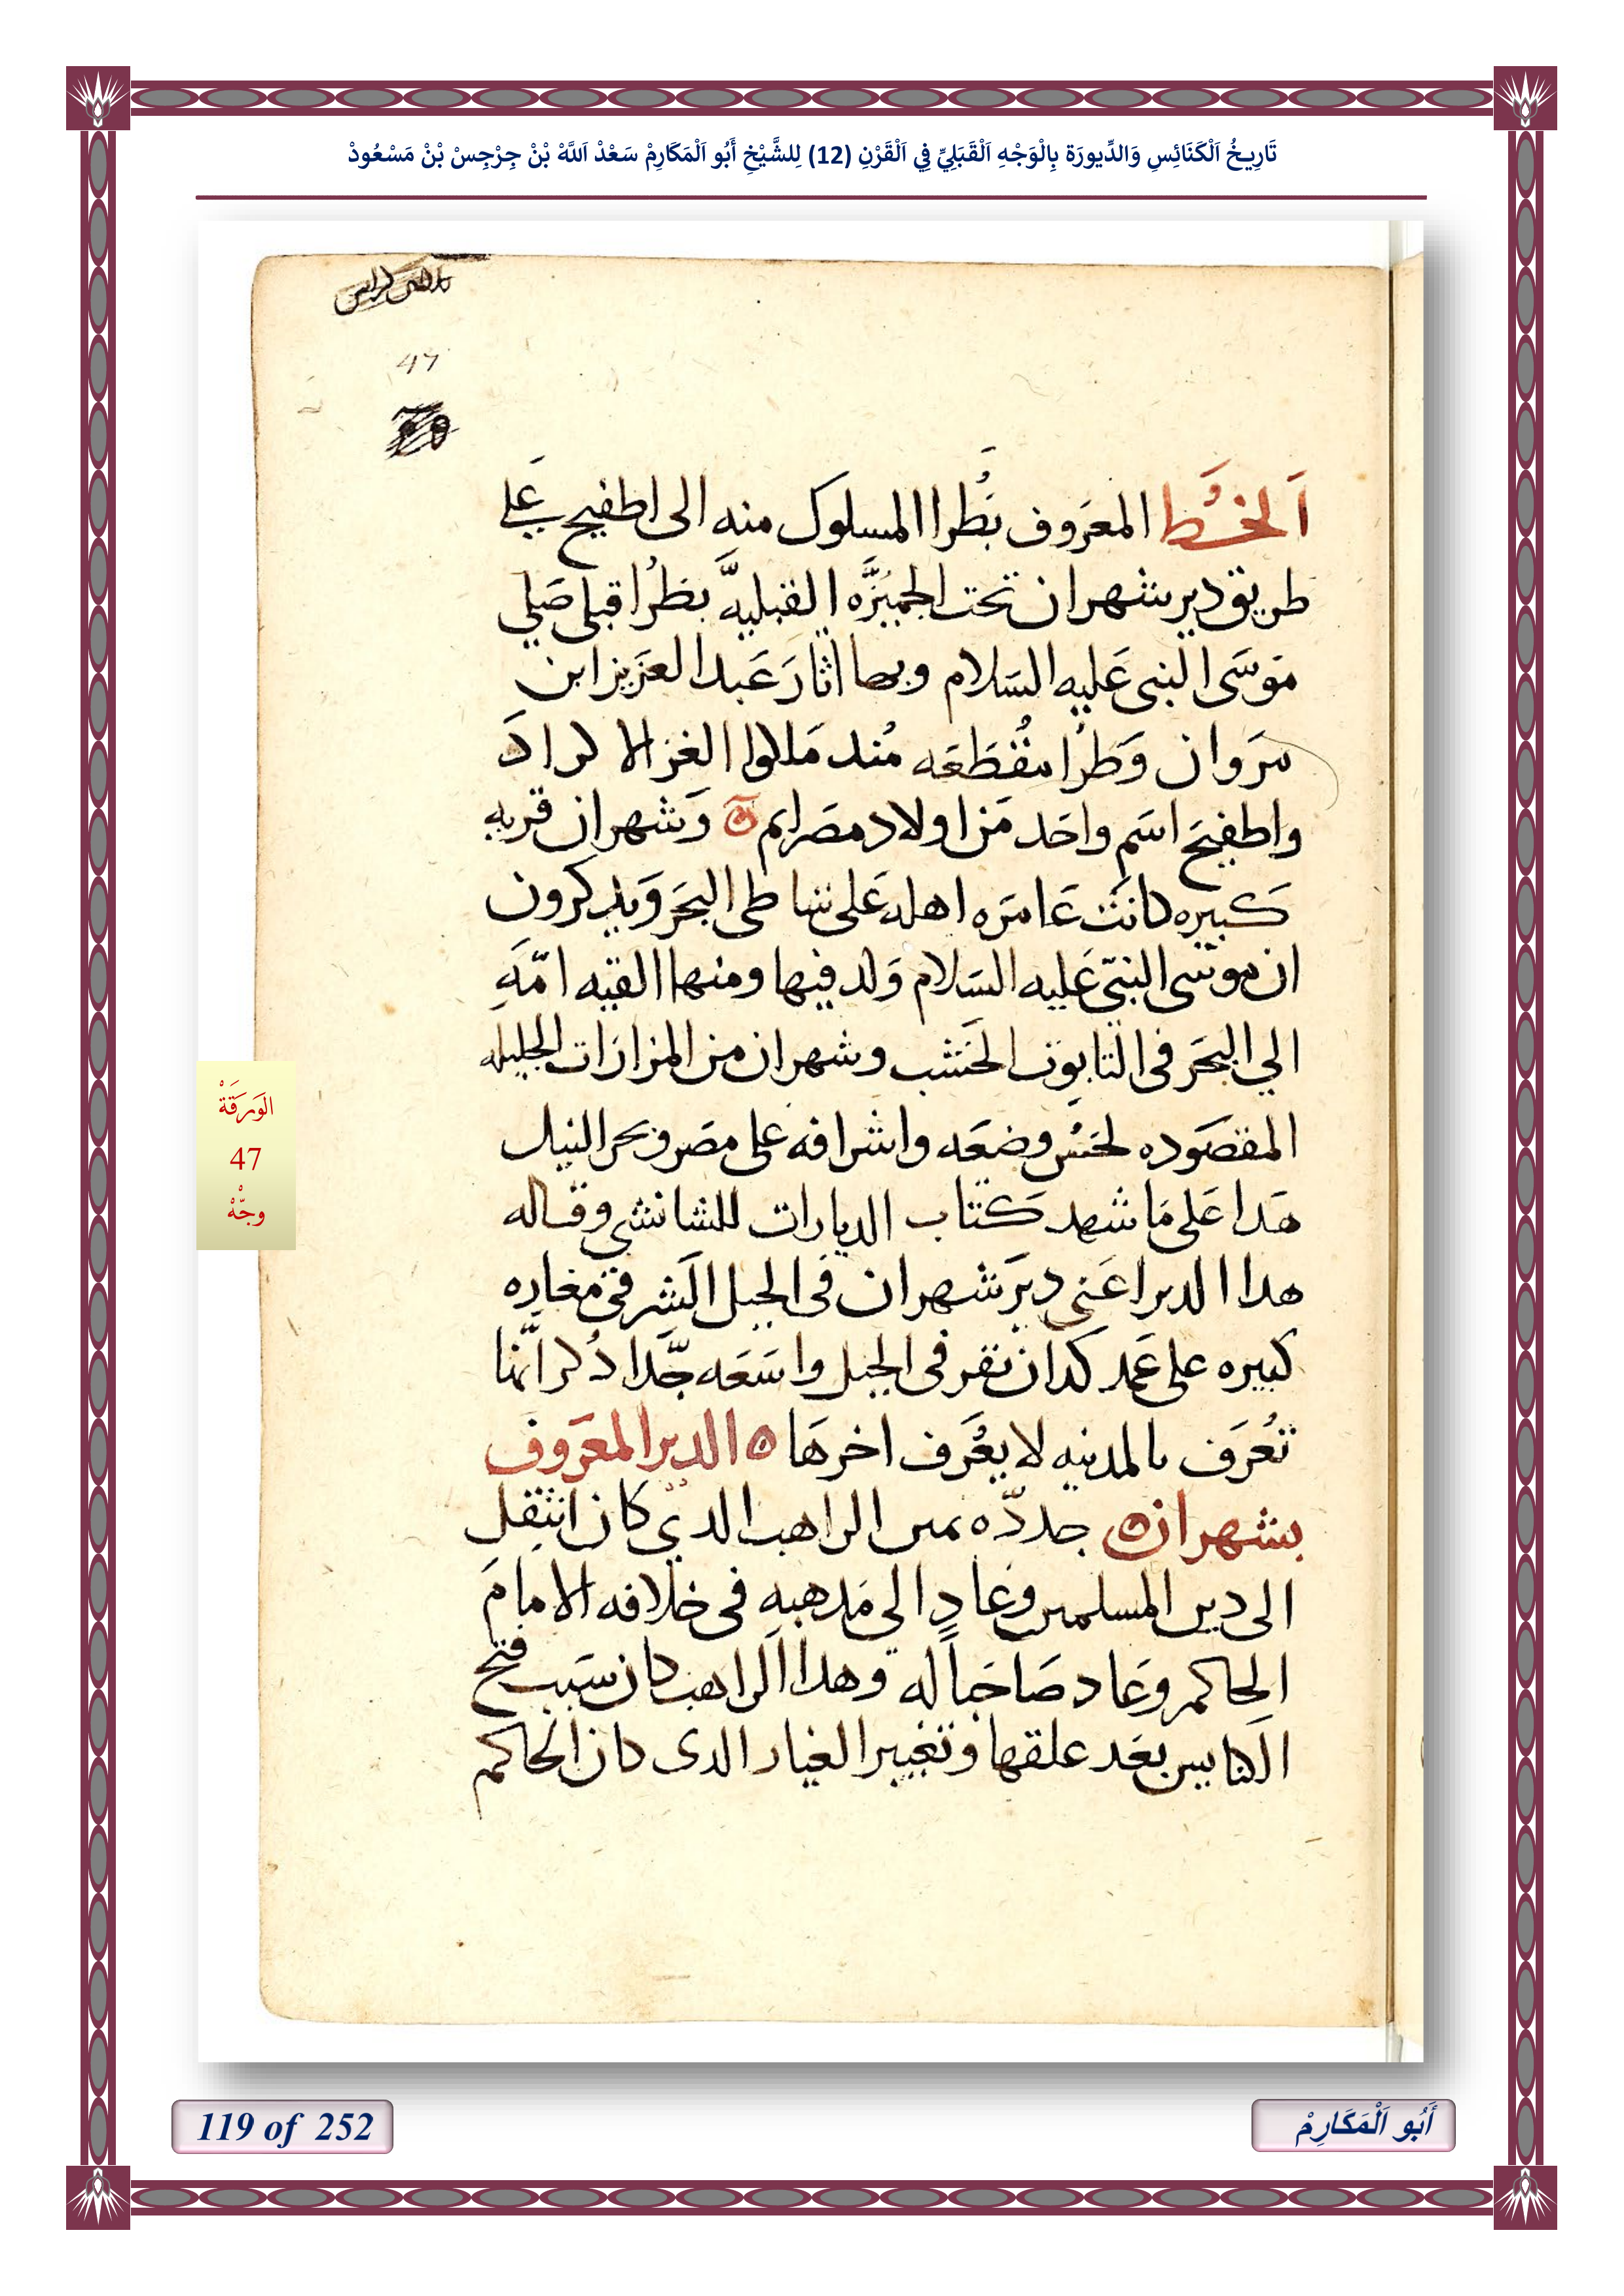 تَارِيخُ اَلْكَنَائِسِ وَالدِّيورَة بِالْوَجْهِ اَلْقَبَلِيِّ فِي اَلْقَرْنِ (12) لِلشَّيْخِ أَبُو اَلْمَكَارِمْ سَعْدْ اَللَّهْ بْنْ جِرْجِسْ بْنْ مَسْعُودْ
47
اَلخُط المعَروف بَطُرا المسلوك منه الى اطفيح عَلى
طريق دير شهران تحت الجميزَّه القبليَّه بطُرا قبلى صَلي
موسَى النبى عَليه السَلام وبها اثارَ عَبد العَزيز ابن
مَروان وَطرُا مقُطَعَه مُند مَلكوا الغز الاكراد
واطفيحَ اسَم واحَد مَن اولاد مصَرايم وَشهران قريه
كَبيره كانَت عَامَره اهله عَلى شاطى البحَر وَيدكرون
ان موسَى النبىّ عَليه السَلام وَلد فيها ومنها القيه امّهَ
الي البحَر فى التابوت الخَشب وشهران من المزارَات الجليله
المقصَوده لحسُن وضعَه واشرافه على مصَر وبحر النيل
هَدا عَلى مَا شهد كَتاب الديارات للشابشتي وقاله
هدا الدير اعَنى ديرَ شهران فى الجبل الَشرقى مغاره
كبيره على عَمد كدان نقر فى الجبل واسَعَه جَدا دُكر انّها
تعُرَف بالمدينه لا يعُرَف اخرهَا ه الدير المعَروف
بشهران جددّه بمين الراهب الدي كان انتقل
الى دين المسلمين وعَاد الي مَدهبه فى خلافه الامامَ
الحاكم وعَاد صَاحباً له وهدا الراهب كان سَبب فتح
الكنايس بعَد غلقها وتغيير الغيار الدى كان الحاكم
الوَرَقَةْ
47
وجّهْ
119 of 252
أَبُو اَلْمَكَارِمْ